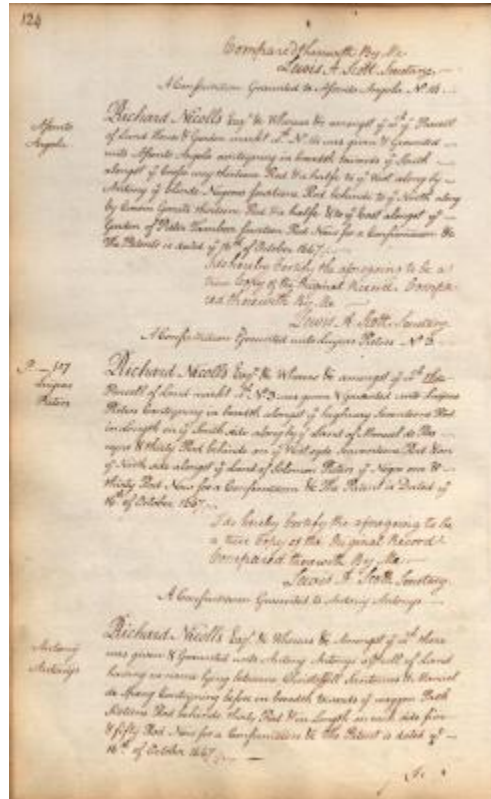 124
Compared therewith By Me
Lewis A. Scott Secretary
A Confirmation Graunted to Assento Angola N. 14
Assento
Angola
Richard Nicolls Esqr. &c Whereas &c amongst ye sd. ye Parcell
of Land House & Garden markt Lr. N. 14 was given & Graunted
unto Assento Angola containing in breadth towards ye South
alongst ye thirteen Rod & a halfe to ye West along by
Antony ye blinde Negroes fourteen Rod behinde to ye North along
by thirteen Rod & a halfe & to ye East alongst ye
Garden of Pieter Tamboer fourteen Rod Now for a Confirmation &c
The Patent is dated ye 16th of October 1667
I do hereby Certify the aforegoing to be a
true Copy of the Original Record Compa-
red therewith By Me
Lewis A. Scott Secretary
A Confirmation Graunted unto Lucas Pieters N. 3
P. 117
Lucas
Pieters
Richard Nicolls Esqr. &c Whereas &c amongst ye sd. the
Parcell of Land markt Lr. N. 3 was given & Graunted unto Lucas
Pieters Containing in breadth alongst ye highway Seventeen Rod
in Length on ye South side along by ye Land of Manuel de
& thirty Rod behinde on ye West syde Seventeen Rod & on
ye North side alongst ye Land of Solomon Pieters ye Negro one &
thirty Rod Now for a Confirmation &c The Patent is Dated ye
16th of October 1667
I do hereby Certify the aforegoing to be
a true Copy of the Original Record
Compared therewith By Me
Lewis A. Scott Secretary
A Confirmation Graunted to Antony Antonys
Antony
Antonys
Richard Nicolls Esqr. &c Whereas &c Amongst ye sd. there
was given & Graunted unto Antony Antonys a parcell of Land
having no name lying between Christoffell Santome & Manuel
de Spany Containing before in breadth towards ye waggon Path
Rod behinde thirty Rod & in Length in each side five
& fifty Rod Now for a Confirmation &c The Patent is dated ye
16th of October 1667